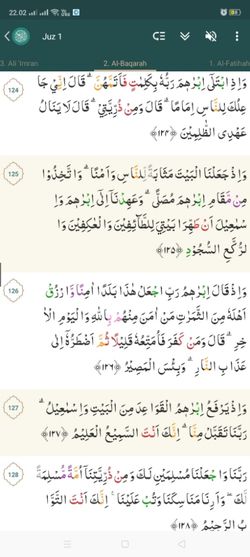 22.02
Juz 1
3. Ali 'Imran
2. Al-Baqarah
1. Al-Fatihah
124
وَاِذِ ابْتَلٰٓى اِبْرٰهٖمَ رَبُّهٗ بِكَلِمٰتٍ فَاَتَمَّهُنَّ ۗ قَالَ اِنِّيْ جَا
عِلُكَ لِلنَّاسِ اِمَامًا ۗ قَالَ وَمِنْ ذُرِّيَّتِيْ ۗ قَالَ لَا يَنَالُ
عَهْدِى الظّٰلِمِيْنَ ﴿١٢٤﴾
125
وَاِذْ جَعَلْنَا الْبَيْتَ مَثَابَةً لِّلنَّاسِ وَاَمْنًا ۗ وَاتَّخِذُوْا
مِنْ مَّقَامِ اِبْرٰهٖمَ مُصَلًّى ۗ وَعَهِدْنَآ اِلٰٓى اِبْرٰهٖمَ وَاِ
سْمٰعِيْلَ اَنْ طَهِّرَا بَيْتِيَ لِلطَّآئِفِيْنَ وَالْعٰكِفِيْنَ وَا
لرُّكَّعِ السُّجُوْدِ ﴿١٢٥﴾
126
وَاِذْ قَالَ اِبْرٰهٖمُ رَبِّ اجْعَلْ هٰذَا بَلَدًا اٰمِنًا وَّارْزُقْ
اَهْلَهٗ مِنَ الثَّمَرٰتِ مَنْ اٰمَنَ مِنْهُمْ بِاللّٰهِ وَالْيَوْمِ الْاٰ
خِرِ ۗ قَالَ وَمَنْ كَفَرَ فَاُمَتِّعُهٗ قَلِيْلًا ثُمَّ اَضْطَرُّهٗٓ اِلٰى
عَذَابِ النَّارِ ۗ وَبِئْسَ الْمَصِيْرُ ﴿١٢٦﴾
127
وَاِذْ يَرْفَعُ اِبْرٰهٖمُ الْقَوَاعِدَ مِنَ الْبَيْتِ وَاِسْمٰعِيْلُ ۗ
رَبَّنَا تَقَبَّلْ مِنَّا ۗ اِنَّكَ اَنْتَ السَّمِيْعُ الْعَلِيْمُ ﴿١٢٧﴾
128
رَبَّنَا وَاجْعَلْنَا مُسْلِمَيْنِ لَكَ وَمِنْ ذُرِّيَّتِنَآ اُمَّةً مُّسْلِمَةً
لَّكَ ۖ وَاَرِنَا مَنَاسِكَنَا وَتُبْ عَلَيْنَا ۚ اِنَّكَ اَنْتَ التَّوَّا
بُ الرَّحِيْمُ ﴿١٢٨﴾